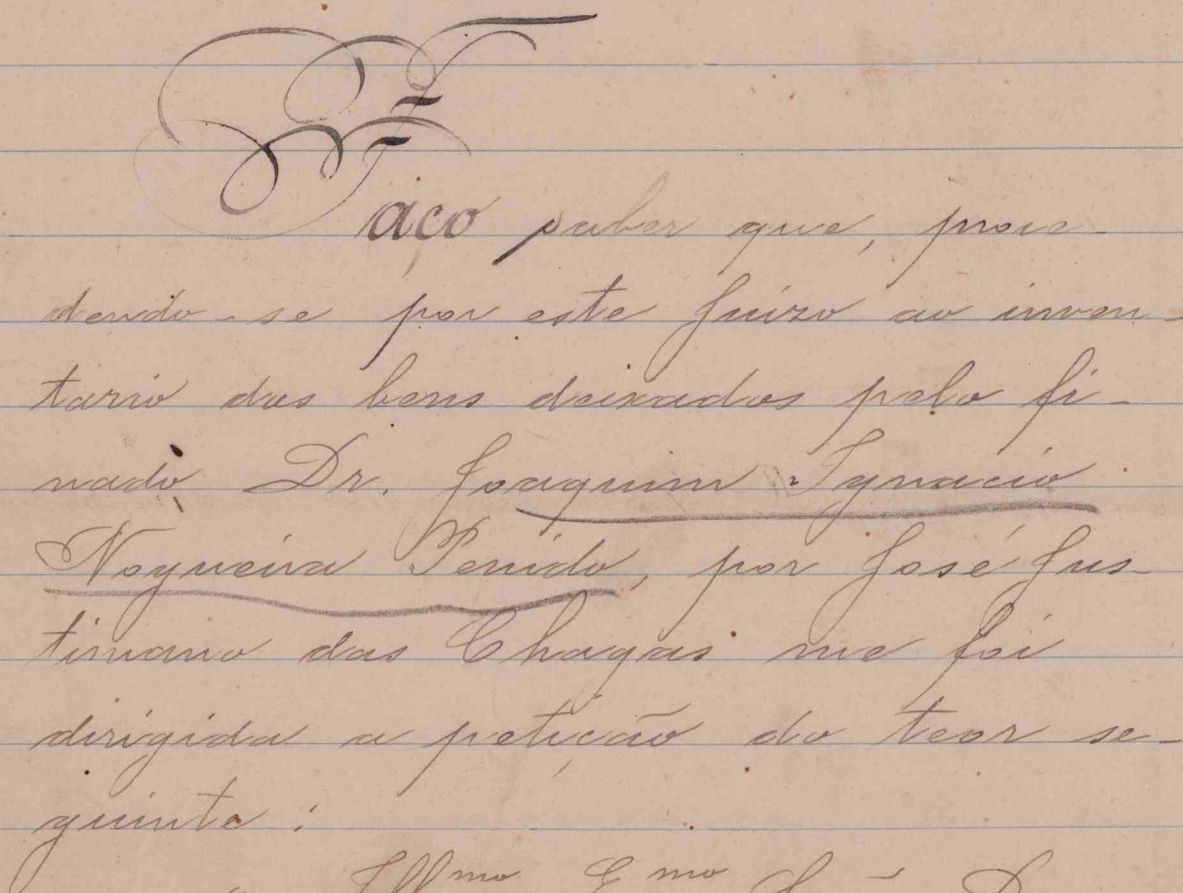 Faço saber que, proce-
dendo-se por este Juizo ao inven-
tario dos bens deixados pelo fi-
nado Dr. Joaquim Ignacio
Nogueira Penido, por José Jus-
tiniano das Chagas me foi
dirigida a petição do teor se-
guinte:
Illmo Emo